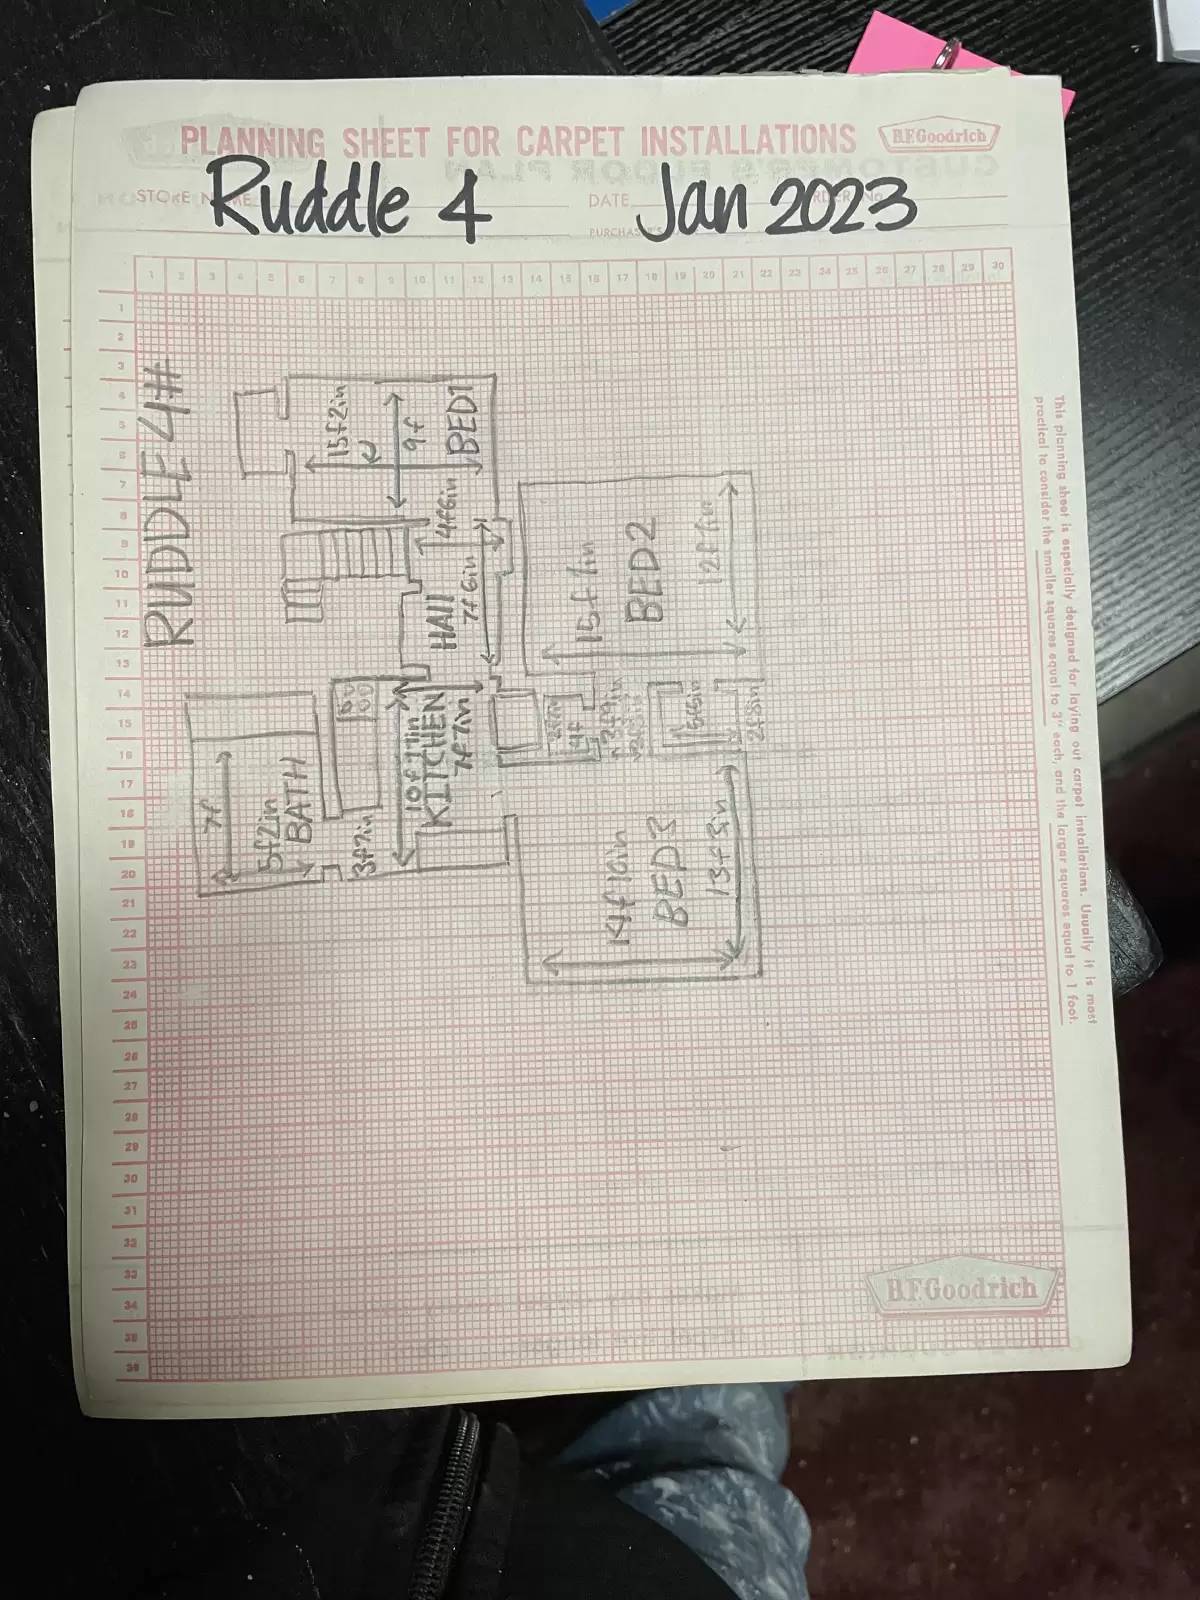 PLANNING SHEET FOR CARPET INSTALLATIONS
B.F.Goodrich
STORE
DATE
Ruddle 4 Jan 2023
1 2 3 4 5 6 7 8 9 10 11 12 13 14 15 16 17 18 19 20 21 22 23 24 25 26 27 28 29 30
1
2
3
4
5
6
7
8
9
10
11
12
13
14
15
16
17
18
19
20
21
22
23
24
25
26
27
28
29
30
31
32
33
34
35
36
RUDDLE 4#
15f2in
9f
BED1
4f6in
HAll
7f6in
7f
5f2in
BATH
3f7in
10f11in
KITCHEN
7f7in
15f1in
BED2
12f1in
4f
3f9in
5f6in
2f3in
14f10in
BED3
13f3in
This planning sheet is especially designed for laying out carpet installations. Usually it is most
practical to consider the smaller squares equal to 3" each, and the larger squares equal to 1 foot.
B.F.Goodrich